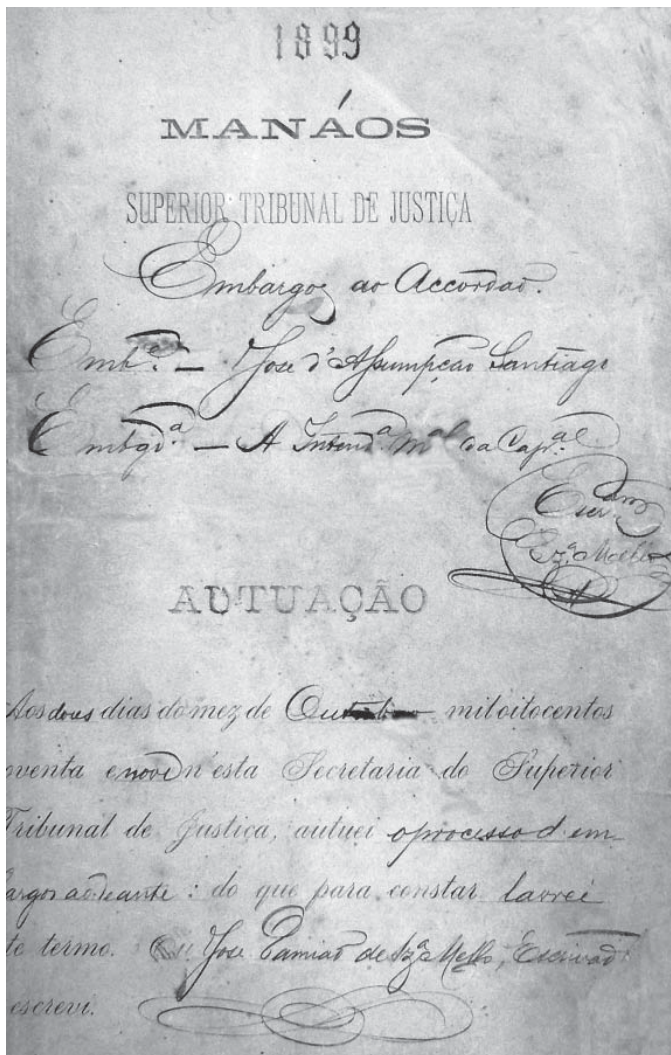 1899
MANÁOS
SUPERIOR TRIBUNAL DE JUSTIÇA
Embargos ao Accordão.
Embe. — Jose d'Assumpção Santiago
Embgda. — A Intenda. Mal da Capal.
Escram
Bza. Mello
AUTUAÇÃO
Aos dous dias do mez de Outubro mil oitocentos
oventa e nove n'esta Secretaria do Superior
Tribunal de Justiça, autuei o processo d'em-
argos adeante: do que para constar lavrei
te termo. Eu Jose Damião de Bza. Mello, Escrivão
escrevi.